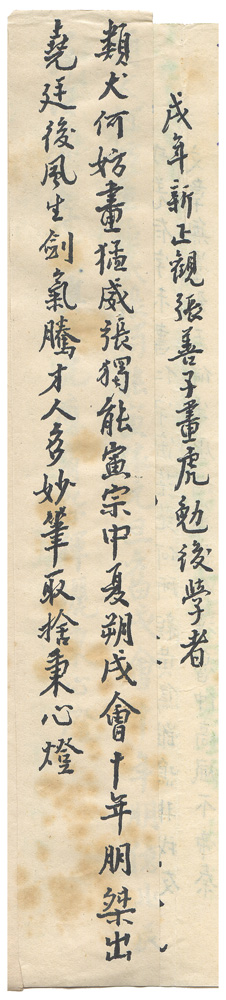 戌年新正觀張善子畫虎勉後學者
類犬何妨畫猛威張獨能寅宗中夏朔戌會十年朋桀出
堯廷後風生劍氣騰才人多妙筆取捨秉心燈